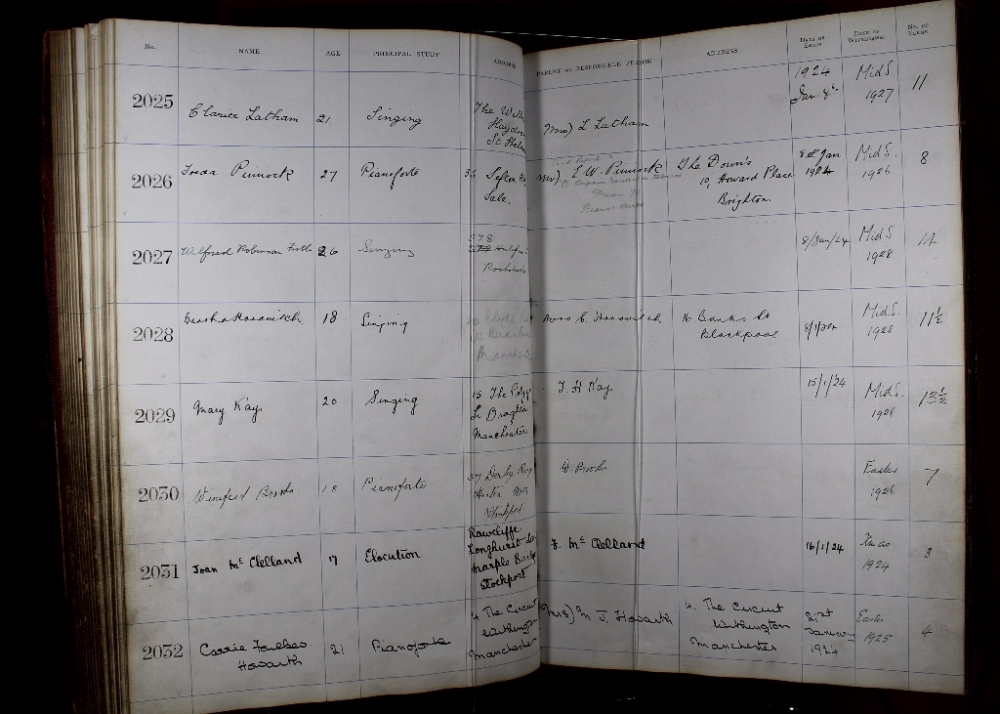 No. NAME AGE PRINCIPAL STUDY ADDRESS PARENT or RESPONSIBLE PERSON ADDRESS DATE OF ENTRY DATE OF WITHDRAWAL NO. OF TERMS
2025 Clarice Latham 21 Singing The
St. Helens
Mrs) L Latham
1924
Jan 8th
MidS
1927
11
2026 Freda Pinnock 27 Pianoforte
Sefton
Sale.
Mr) E. W. Pinnock
Buenos Aires
The Downs
10, Howard Place
Brighton.
8th Jan
1924
MidS.
1926
8
2027 Wilfred Robinson 26 Singing
578
8/Jan/24
MidS
1928
2028 18 Singing
Blackpool
8/1/24
MidS.
1928
11½
2029 Mary Kay 20 Singing
15 The
Manchester
J. H Kay
15/1/24
MidS.
1928
13½
2030 Winifred Brooks 18 Pianoforte
57 Derby
Stockport
Brooks
Easter
1926
7
2031 Joan Mc Clelland 17 Elocution
Rawcliffe
Longhurst
Marple
Stockport
Mc Clelland
16/1/24
Xmas
1924
3
2032 Carrie Howarth 21 Pianoforte
4. The Circuit
Withington
Manchester
Mrs) M J. Howarth
4. The Circuit
Withington
Manchester
21st
January
1924
Easter
1925
4